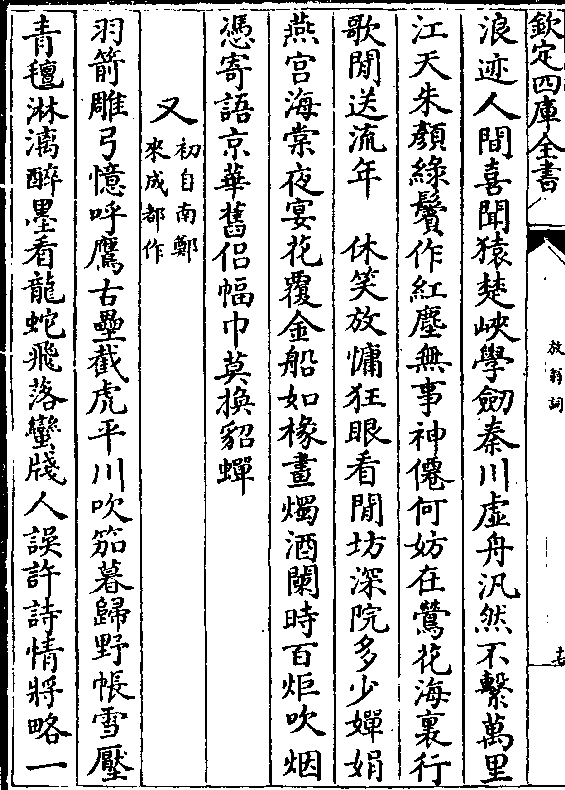 欽定四庫全書
放翁詞
浪迹人間喜聞猿楚峽學劒秦川虛舟汎然不繫萬里
江天朱顏綠鬢作紅塵無事神僊何妨在鶯花海裏行
歌閒送流年　休笑放慵狂眼看閒坊深院多少嬋娟
燕宫海棠夜宴花覆金船如椽畫燭酒闌時百炬吹烟
憑寄語京華舊侣幅巾莫換貂蟬
又初自南鄭來成都作
羽箭雕弓憶呼鷹古壘截虎平川吹笳暮歸野帳雪壓
青氊淋漓醉墨看龍蛇飛落蠻牋人誤許詩情將略一